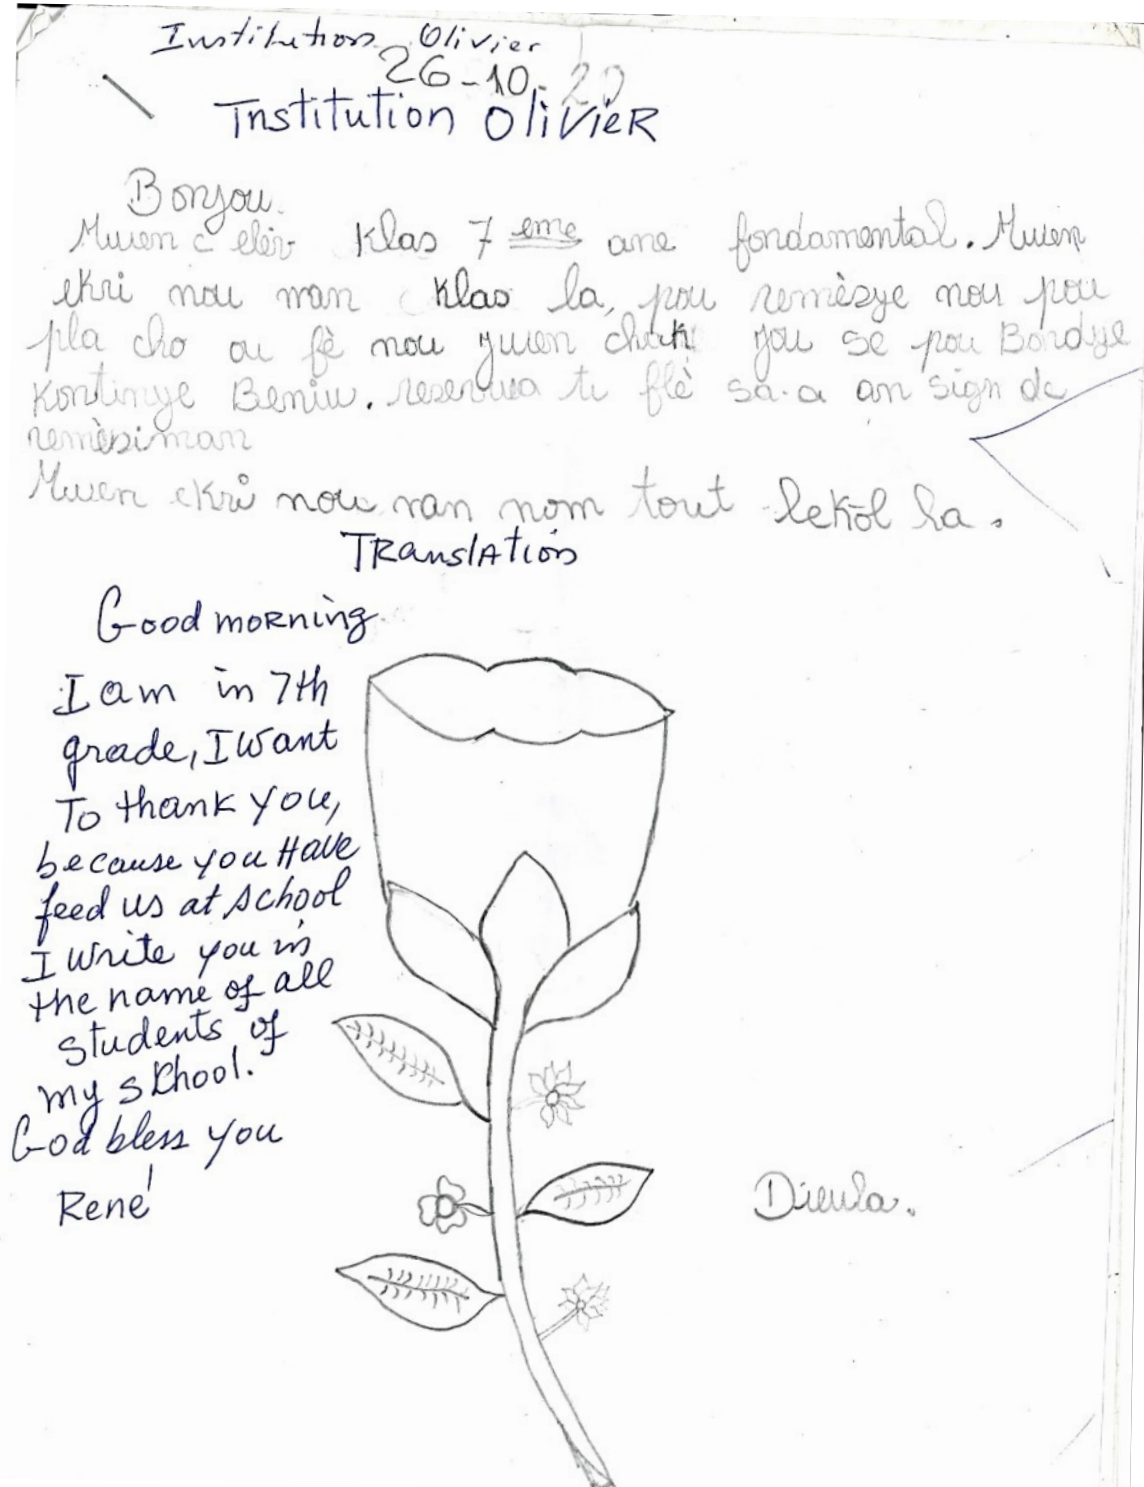 Institution Olivier
26-10-20
Institution Olivier
Bonjou.
Mwen c elèv klas 7 eme ane fondamental. Mwen
ekri nou nan klas la, pou remèsye nou pou
pla cho ou fè nou jwen chak jou se pou Bondye
kontinye Beniw. resevwa ti flè sa-a an sign de
remèsiman
Mwen ekri nou nan nom tout lekòl la.
Translation
Good morning
I am in 7th
grade, I want
To thank you,
because you Have
feed us at school
I write you in
the name of all
students of
my skhool.
God bless you
René
Dieula.